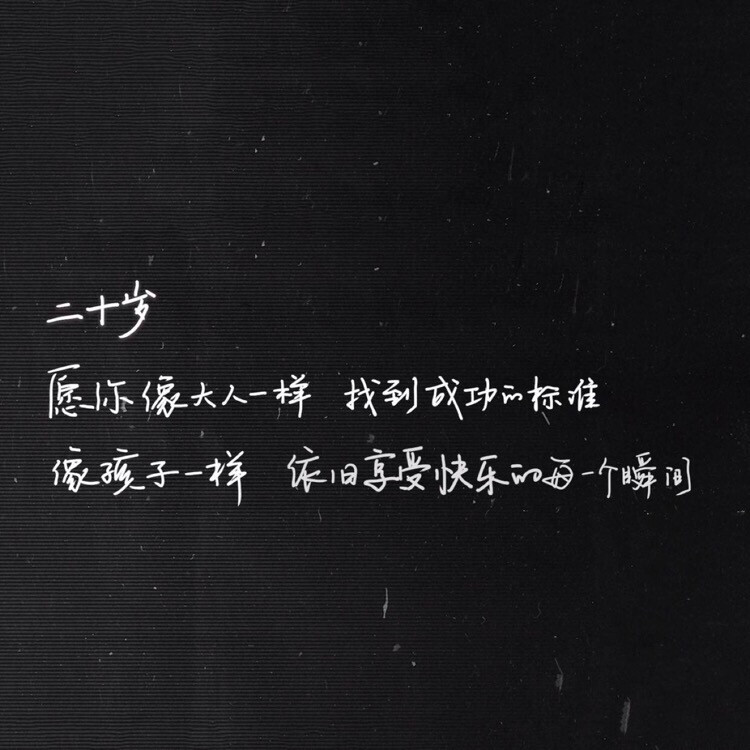 二十岁
愿你像大人一样 找到成功的标准
像孩子一样 依旧享受快乐的每一个瞬间